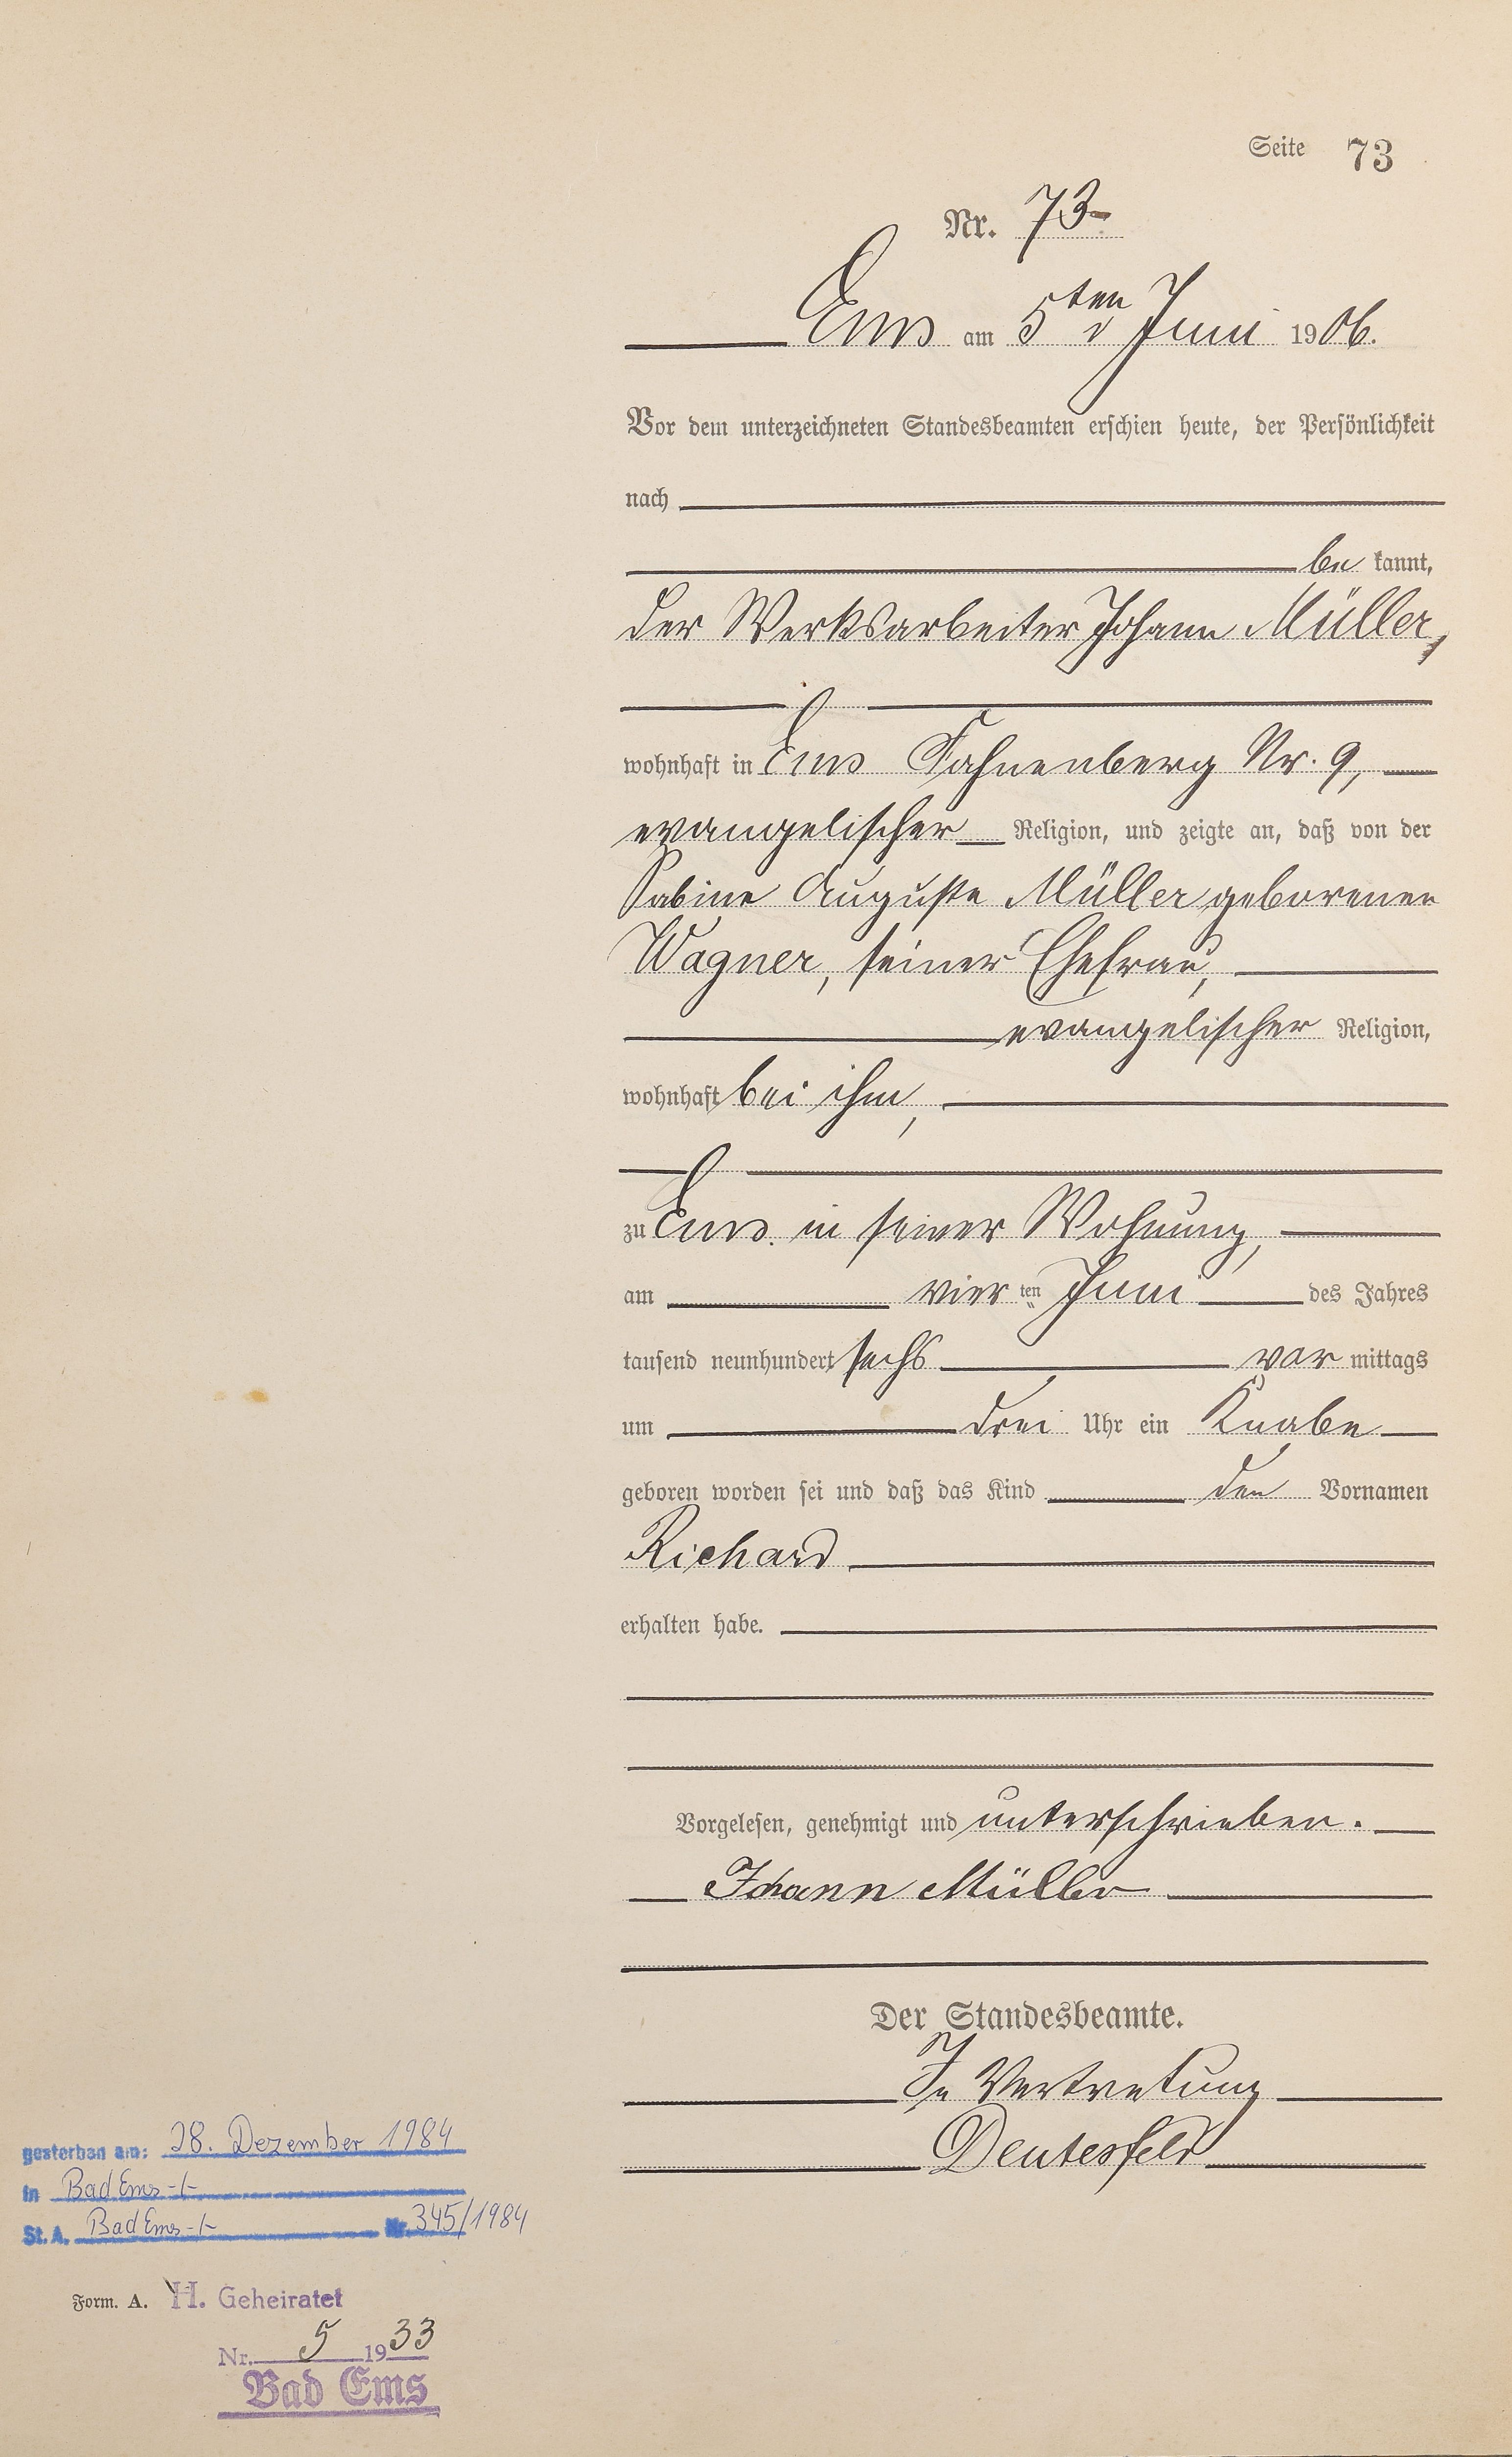 Seite 73
Nr. 73
Ems am 5ten Juni 1906.
Vor dem unterzeichneten Standesbeamten erschien heute, der Persönlichkeit
nach
be kannt,
der Werksarbeiter Johann Müller,
wohnhaft in Ems Fahnenberg Nr. 9,
evangelischer Religion, und zeigte an, daß von der
Sabine Auguste Müller geborenen
Wagner, seiner Ehefrau,
evangelischer Religion,
wohnhaft bei ihm,
zu Ems in seiner Wohnung,
am vier ten Juni des Jahres
tausend neunhundert sechs vor mittags
um drei Uhr ein Knabe
geboren worden sei und daß das Kind den Vornamen
Richard
erhalten habe.
Vorgelesen, genehmigt und unterschrieben.
Johann Müller
Der Standesbeamte.
In Vertretung
Deutesfeld
gestorben am: 28. Dezember 1984
in Bad Ems -/-
St. A. Bad Ems -/- Nr. 345/1984
Form. A. H. Geheiratet
Nr. 5 1933
Bad Ems